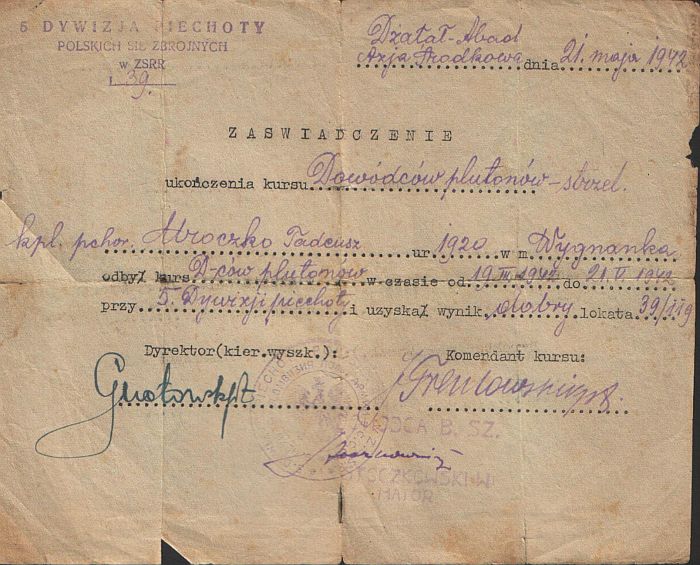 5 DYWIZJA PIECHOTY
POLSKICH SIŁ ZBROJNYCH
w ZSRR
L. 39.
Dżałał-Abad
Azja Środkowa dnia 21. maja 1942
ZASWIADCZENIE
ukończenia kursu Dowódców plutonów-strzel.
kpl. pchor. Mroczko Tadeusz ur 1920 w m. Wygnanka
odbył kurs D-ców plutonów w czasie od 19.III.1942 do 21.V.1942
przy 5. Dywizji piechoty i uzyskał wynik dobry lokata 39/119
Dyrektor(kier.wyszk.): Komendant kursu:
B. SZ.
MAJOR